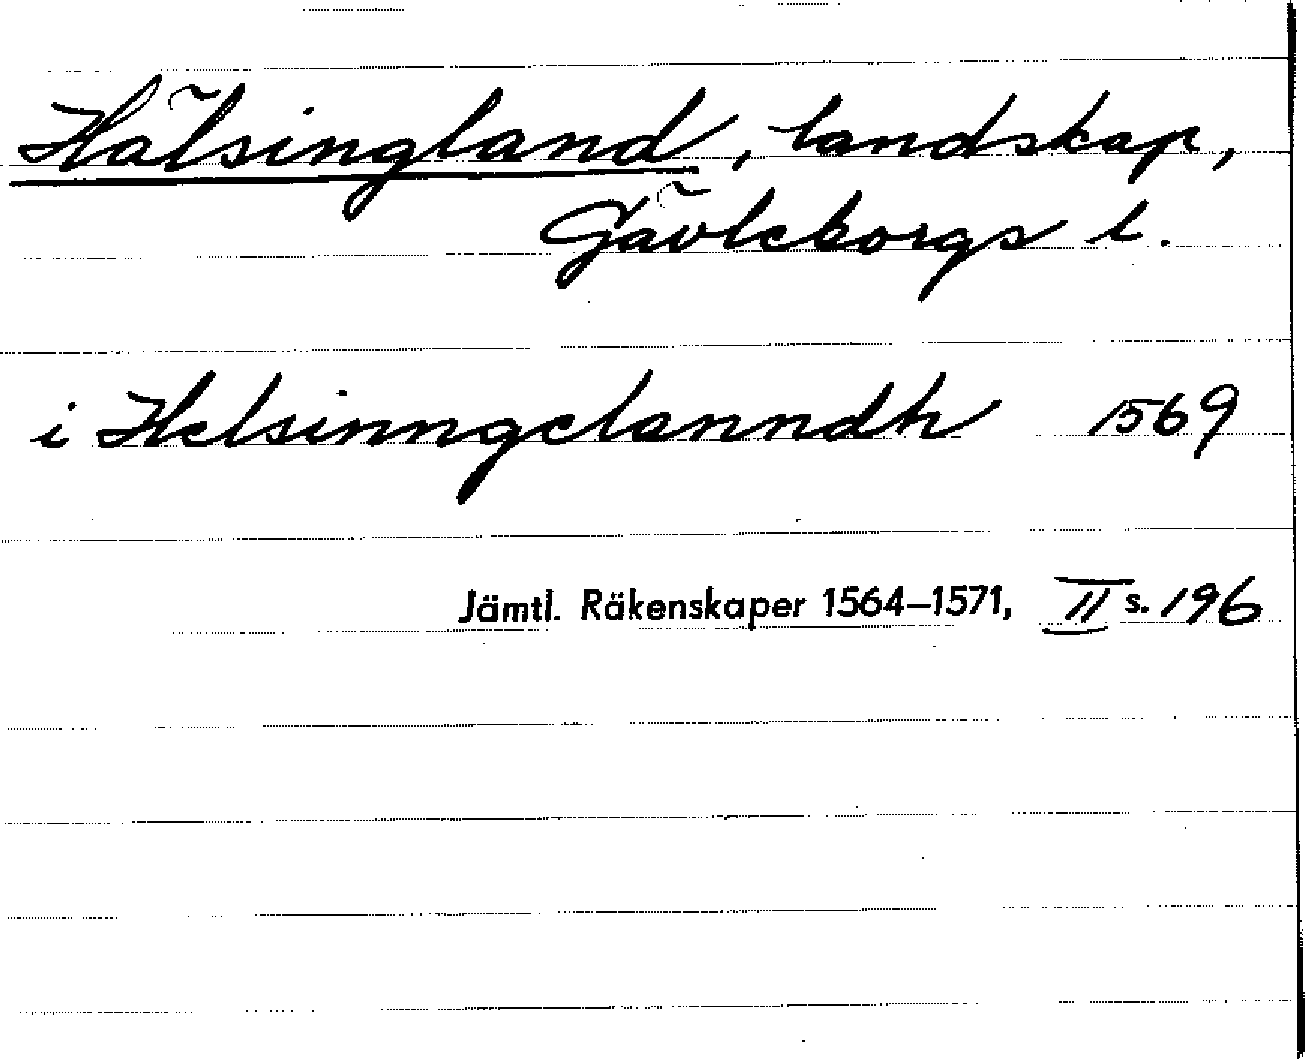 Hälsingland, landskap,
Gävleborgs l.
i Helsinngelanndh 1569
Jämtl. Räkenskaper 1564–1571, II s. 196